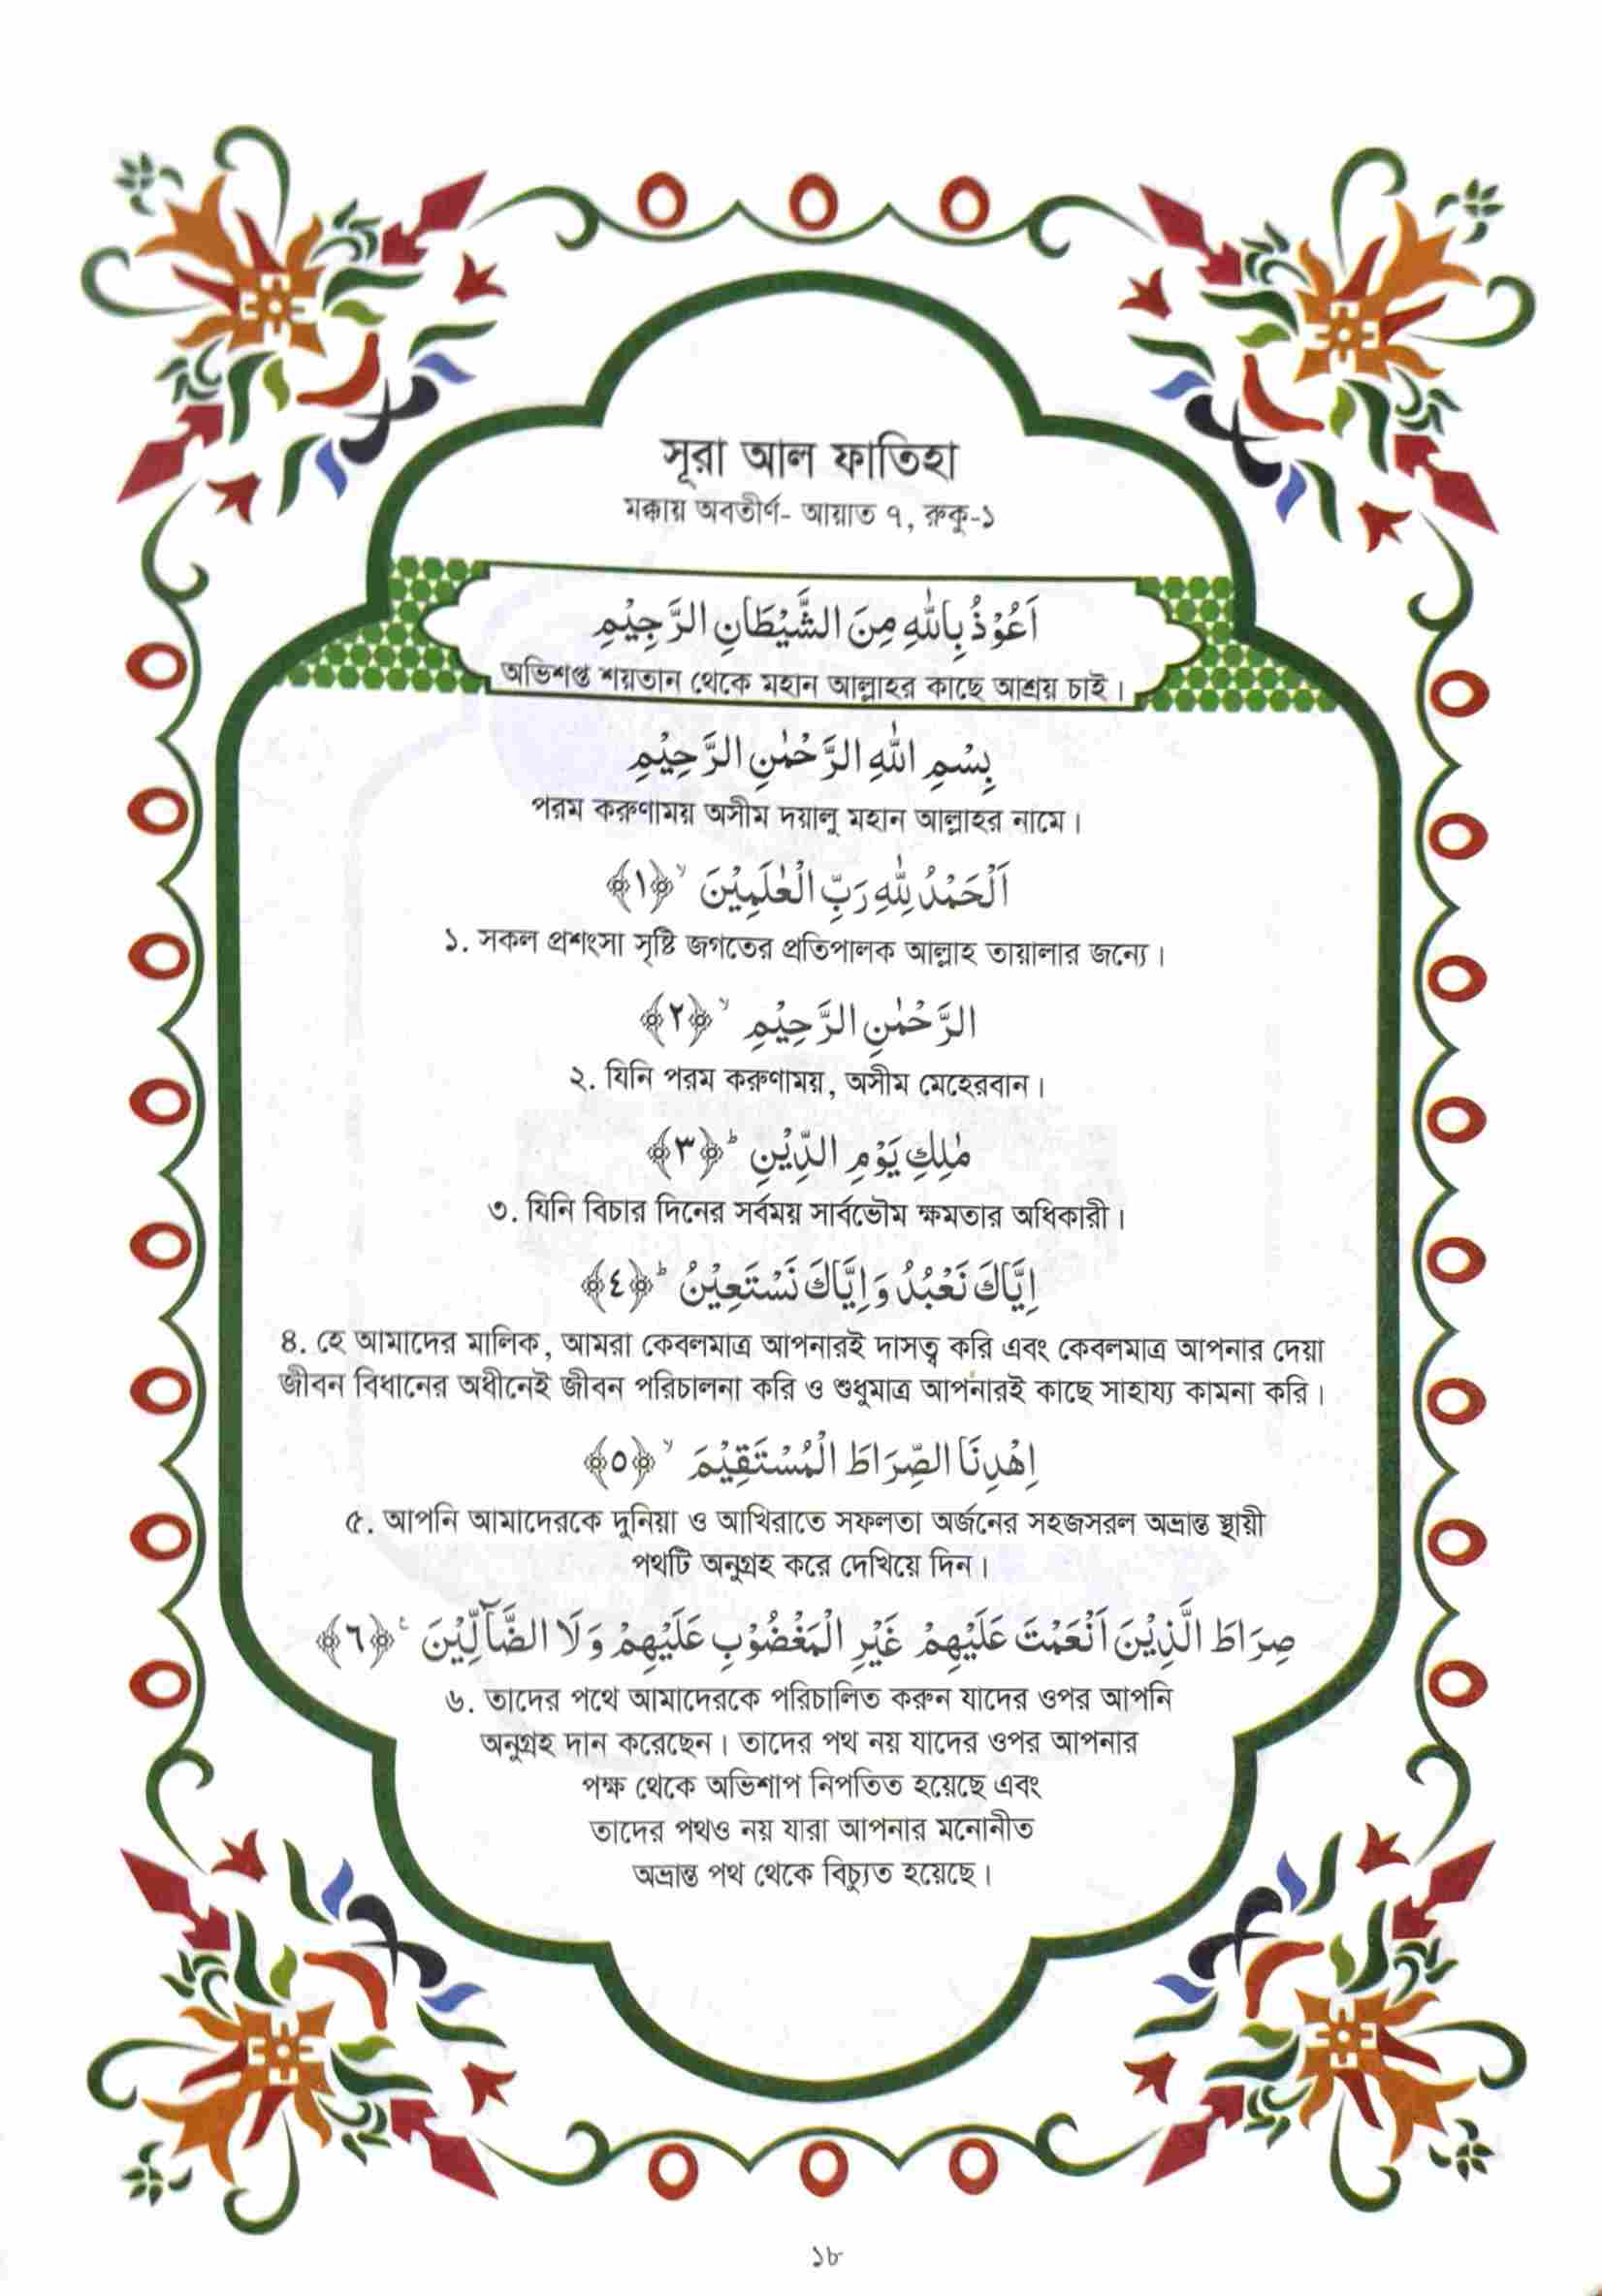 সূরা আল ফাতিহা
মক্কায় অবতীর্ণ- আয়াত ৭, রুকু-১
اَعُوْذُ بِاللّٰهِ مِنَ الشَّيْطَانِ الرَّجِيْمِ
অভিশপ্ত শয়তান থেকে মহান আল্লাহর কাছে আশ্রয় চাই।
بِسْمِ اللّٰهِ الرَّحْمٰنِ الرَّحِيْمِ
পরম করুণাময় অসীম দয়ালু মহান আল্লাহর নামে।
اَلْحَمْدُ لِلّٰهِ رَبِّ الْعٰلَمِيْنَ ۙ ﴿١﴾
১. সকল প্রশংসা সৃষ্টি জগতের প্রতিপালক আল্লাহ তায়ালার জন্যে।
الرَّحْمٰنِ الرَّحِيْمِ ۙ ﴿٢﴾
২. যিনি পরম করুণাময়, অসীম মেহেরবান।
مٰلِكِ يَوْمِ الدِّيْنِ ؕ ﴿٣﴾
৩. যিনি বিচার দিনের সর্বময় সার্বভৌম ক্ষমতার অধিকারী।
اِيَّاكَ نَعْبُدُ وَاِيَّاكَ نَسْتَعِيْنُ ؕ ﴿٤﴾
৪. হে আমাদের মালিক, আমরা কেবলমাত্র আপনারই দাসত্ব করি এবং কেবলমাত্র আপনার দেয়া
জীবন বিধানের অধীনেই জীবন পরিচালনা করি ও শুধুমাত্র আপনারই কাছে সাহায্য কামনা করি।
اِهْدِنَا الصِّرَاطَ الْمُسْتَقِيْمَ ۙ ﴿٥﴾
৫. আপনি আমাদেরকে দুনিয়া ও আখিরাতে সফলতা অর্জনের সহজসরল অভ্রান্ত স্থায়ী
পথটি অনুগ্রহ করে দেখিয়ে দিন।
صِرَاطَ الَّذِيْنَ اَنْعَمْتَ عَلَيْهِمْ غَيْرِ الْمَغْضُوْبِ عَلَيْهِمْ وَلَا الضَّآلِّيْنَ ۚ ﴿٦﴾
৬. তাদের পথে আমাদেরকে পরিচালিত করুন যাদের ওপর আপনি
অনুগ্রহ দান করেছেন। তাদের পথ নয় যাদের ওপর আপনার
পক্ষ থেকে অভিশাপ নিপতিত হয়েছে এবং
তাদের পথও নয় যারা আপনার মনোনীত
অভ্রান্ত পথ থেকে বিচ্যুত হয়েছে।
১৮